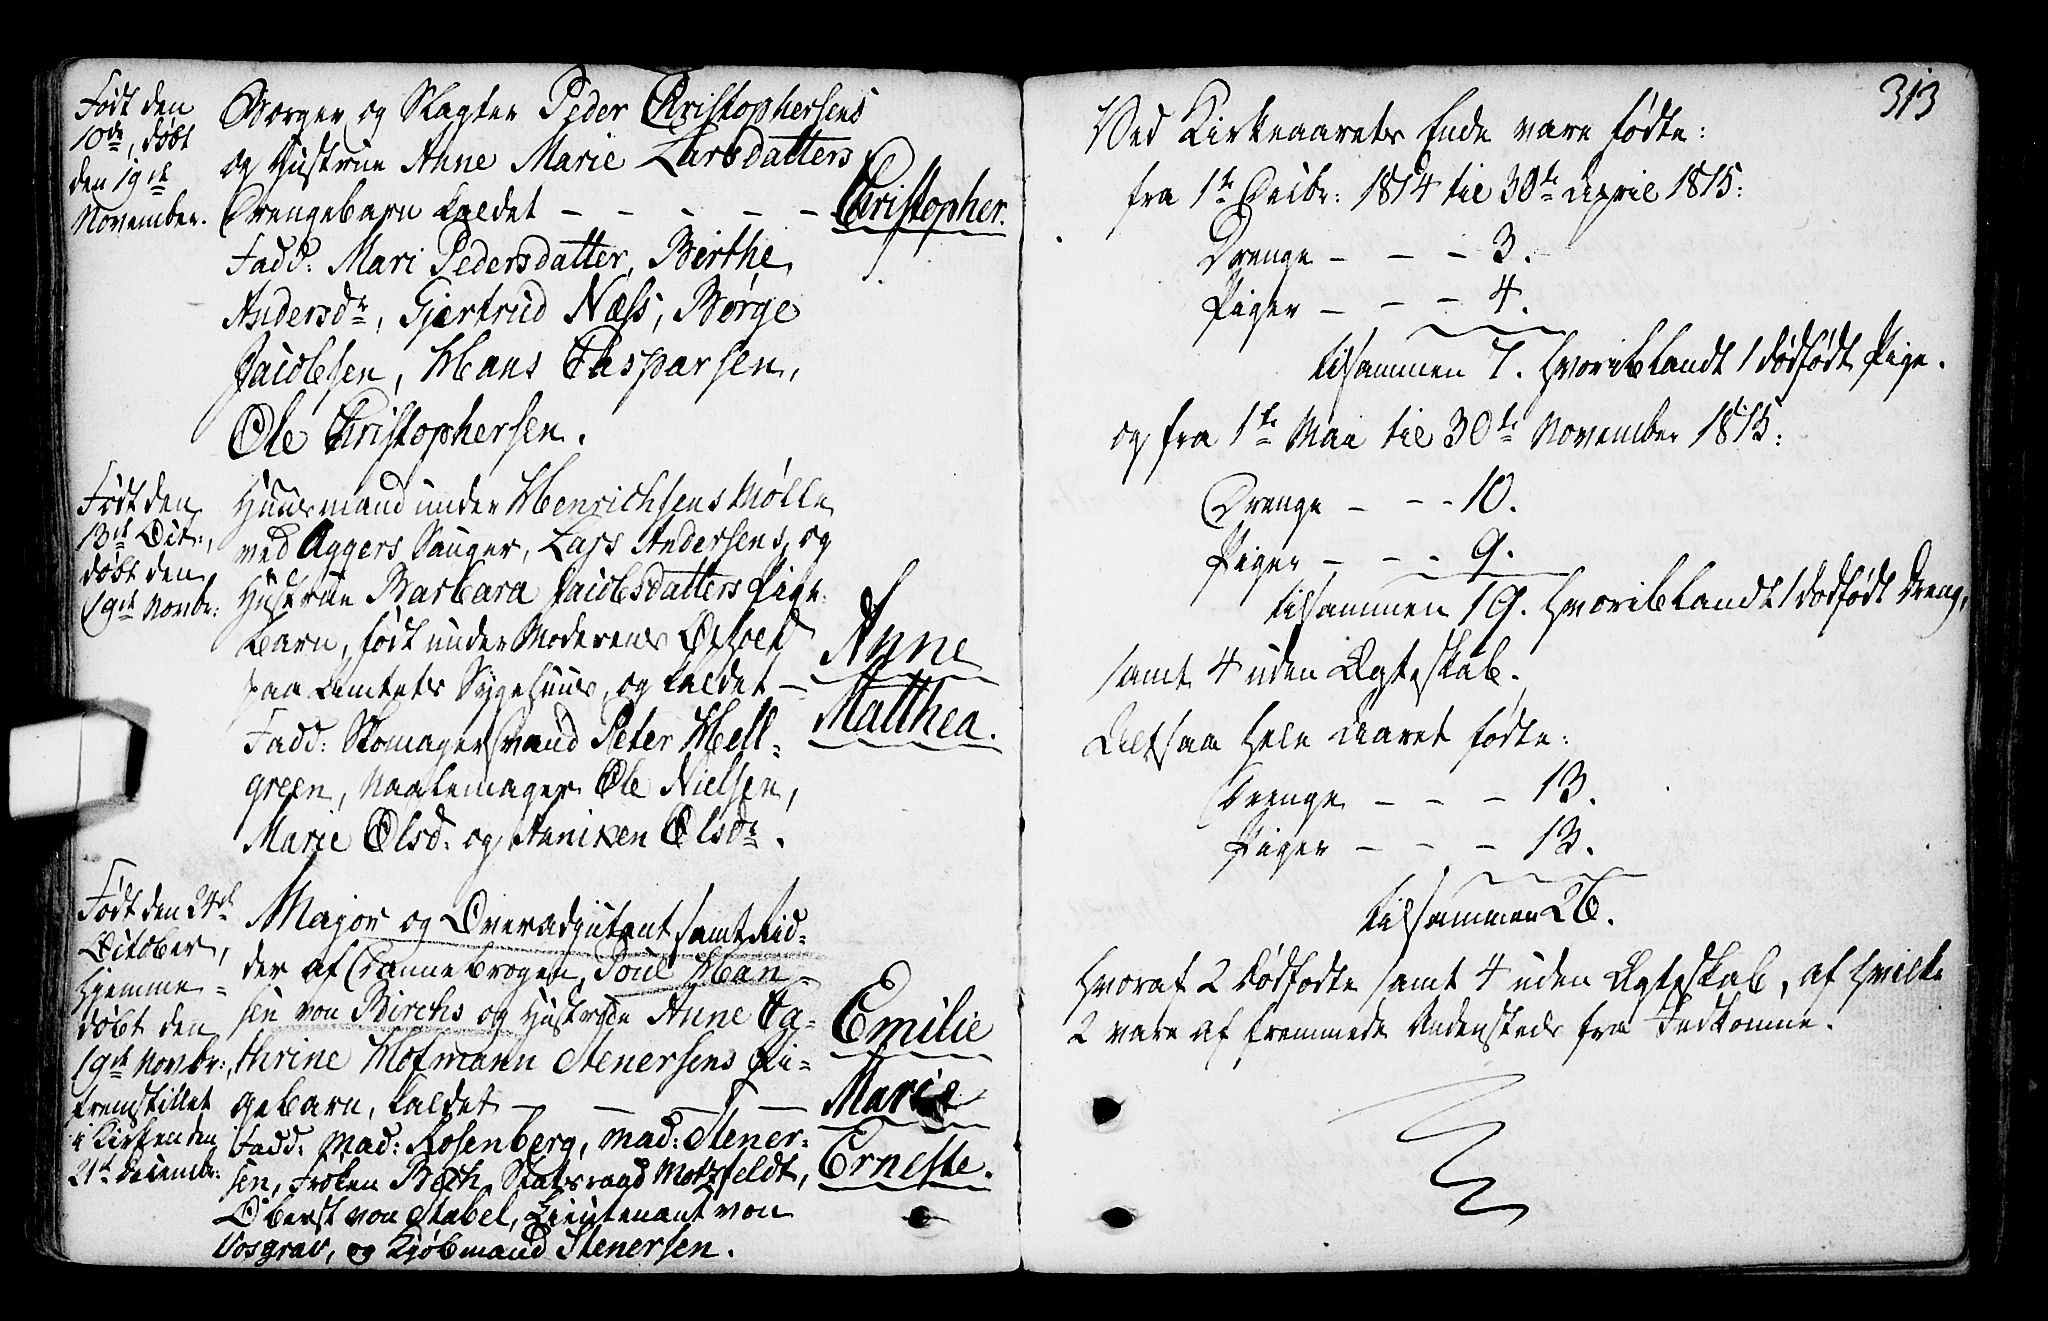 Født den
10de, døbt
den 19de
November.
Borger og Slagter Peder Christophersens
og Hustrue Anne Marie Larsdatters
Drengebarn kaldet – – – – –
Christopher.
Fadd: Mari Pedersdatter, Birthe
Andersdr, Gjertrud Næss, Børge
Jacobsen, Hans Casparsen,
Ole Christophersen.
Født den
13de Oct:,
døbt den
19de Novbr:
Huusmand under Henrichsens Mølle
ved Aggers Sauger, Lars Andersens og
Hustrue Barbara Jacobsdatters Pige-
barn, født under Moderens Ophold
paa Amtets Sygehuus, og kaldet –
Anne
Matthea.
Fadd: Skomagersvend Peter Hell-
green, Naalemager Ole Nielsen,
Marie Olsd: og Anniken Olsdr.
Født den 24de
October,
hjemme-
døbt den
19de Novbr:,
fremstillet
i Kirken den
21de Decembr:
Major og Overadjutant samt Rid-
der af Dannebrogen, Poul Han-
sen von Birchs og Hustrue Anne Ca-
thrine Hofmann Stenersens Pi-
gebarn, kaldet – – – –
Emilie
Marie
Erneste.
Fadd: Mad: Rosenberg, Mad: Stener-
sen, Frøken Bech, Statsraad Motzfeldt,
Oberst von Stabel, Lieutenant von
Vosgrav, og Kjøbmand Stenersen.
313
Ved Kirkeaarets Ende vare fødte:
fra 1te Decbr: 1814 til 30te April 1815:
Drenge – – – 3.
Piger – – – 4.
tilsammen 7. hvoriblandt 1 dødfødt Pige.
og fra 1te Mai til 30te November 1815:
Drenge – – – 10.
Piger – – – 9.
tilsammen 19. hvoriblandt 1 dødfødt Dreng,
samt 4 uden Ægteskab.
Altsaa hele Aaret fødte:
Drenge – – – 13.
Piger – – – 13.
tilsammen 26.
hvoraf 2 dødfødte samt 4 uden Ægteskab, af hvilke
2 vare af fremmede Andensteds fra Indkomne.